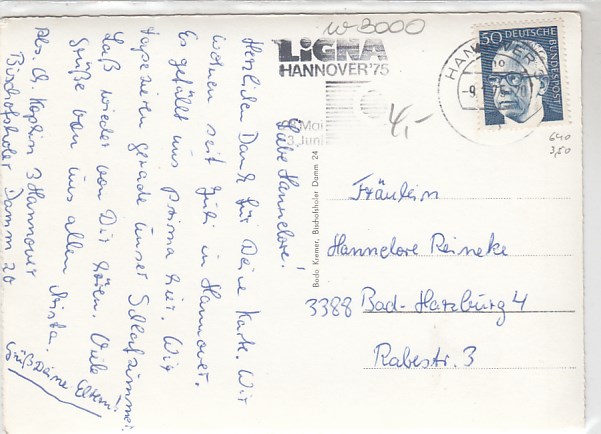 w-3000
LIGNA
HANNOVER '75
3. Juni
HANNOVER
50 DEUTSCHE BUNDESPOST
4,-
640
3,50
Bodo Kremer, Bischofsholer Damm 24
Liebe Hannelore!
Herzlichen Dank für Deine Karte. Wir
wohnen seit Juli in Hannover.
Es gefällt uns prima hier. Wir
tapezieren gerade unser Schlafzimmer.
Laß wieder von Dir hören. Viele
Grüße von uns allen Krista.
Grüß Deine Eltern!
Abs. 3 Hannover
Bischofsholer Damm 20
Fräulein
Hannelore Reineke
3388 Bad-Harzburg 4
Rabestr. 3